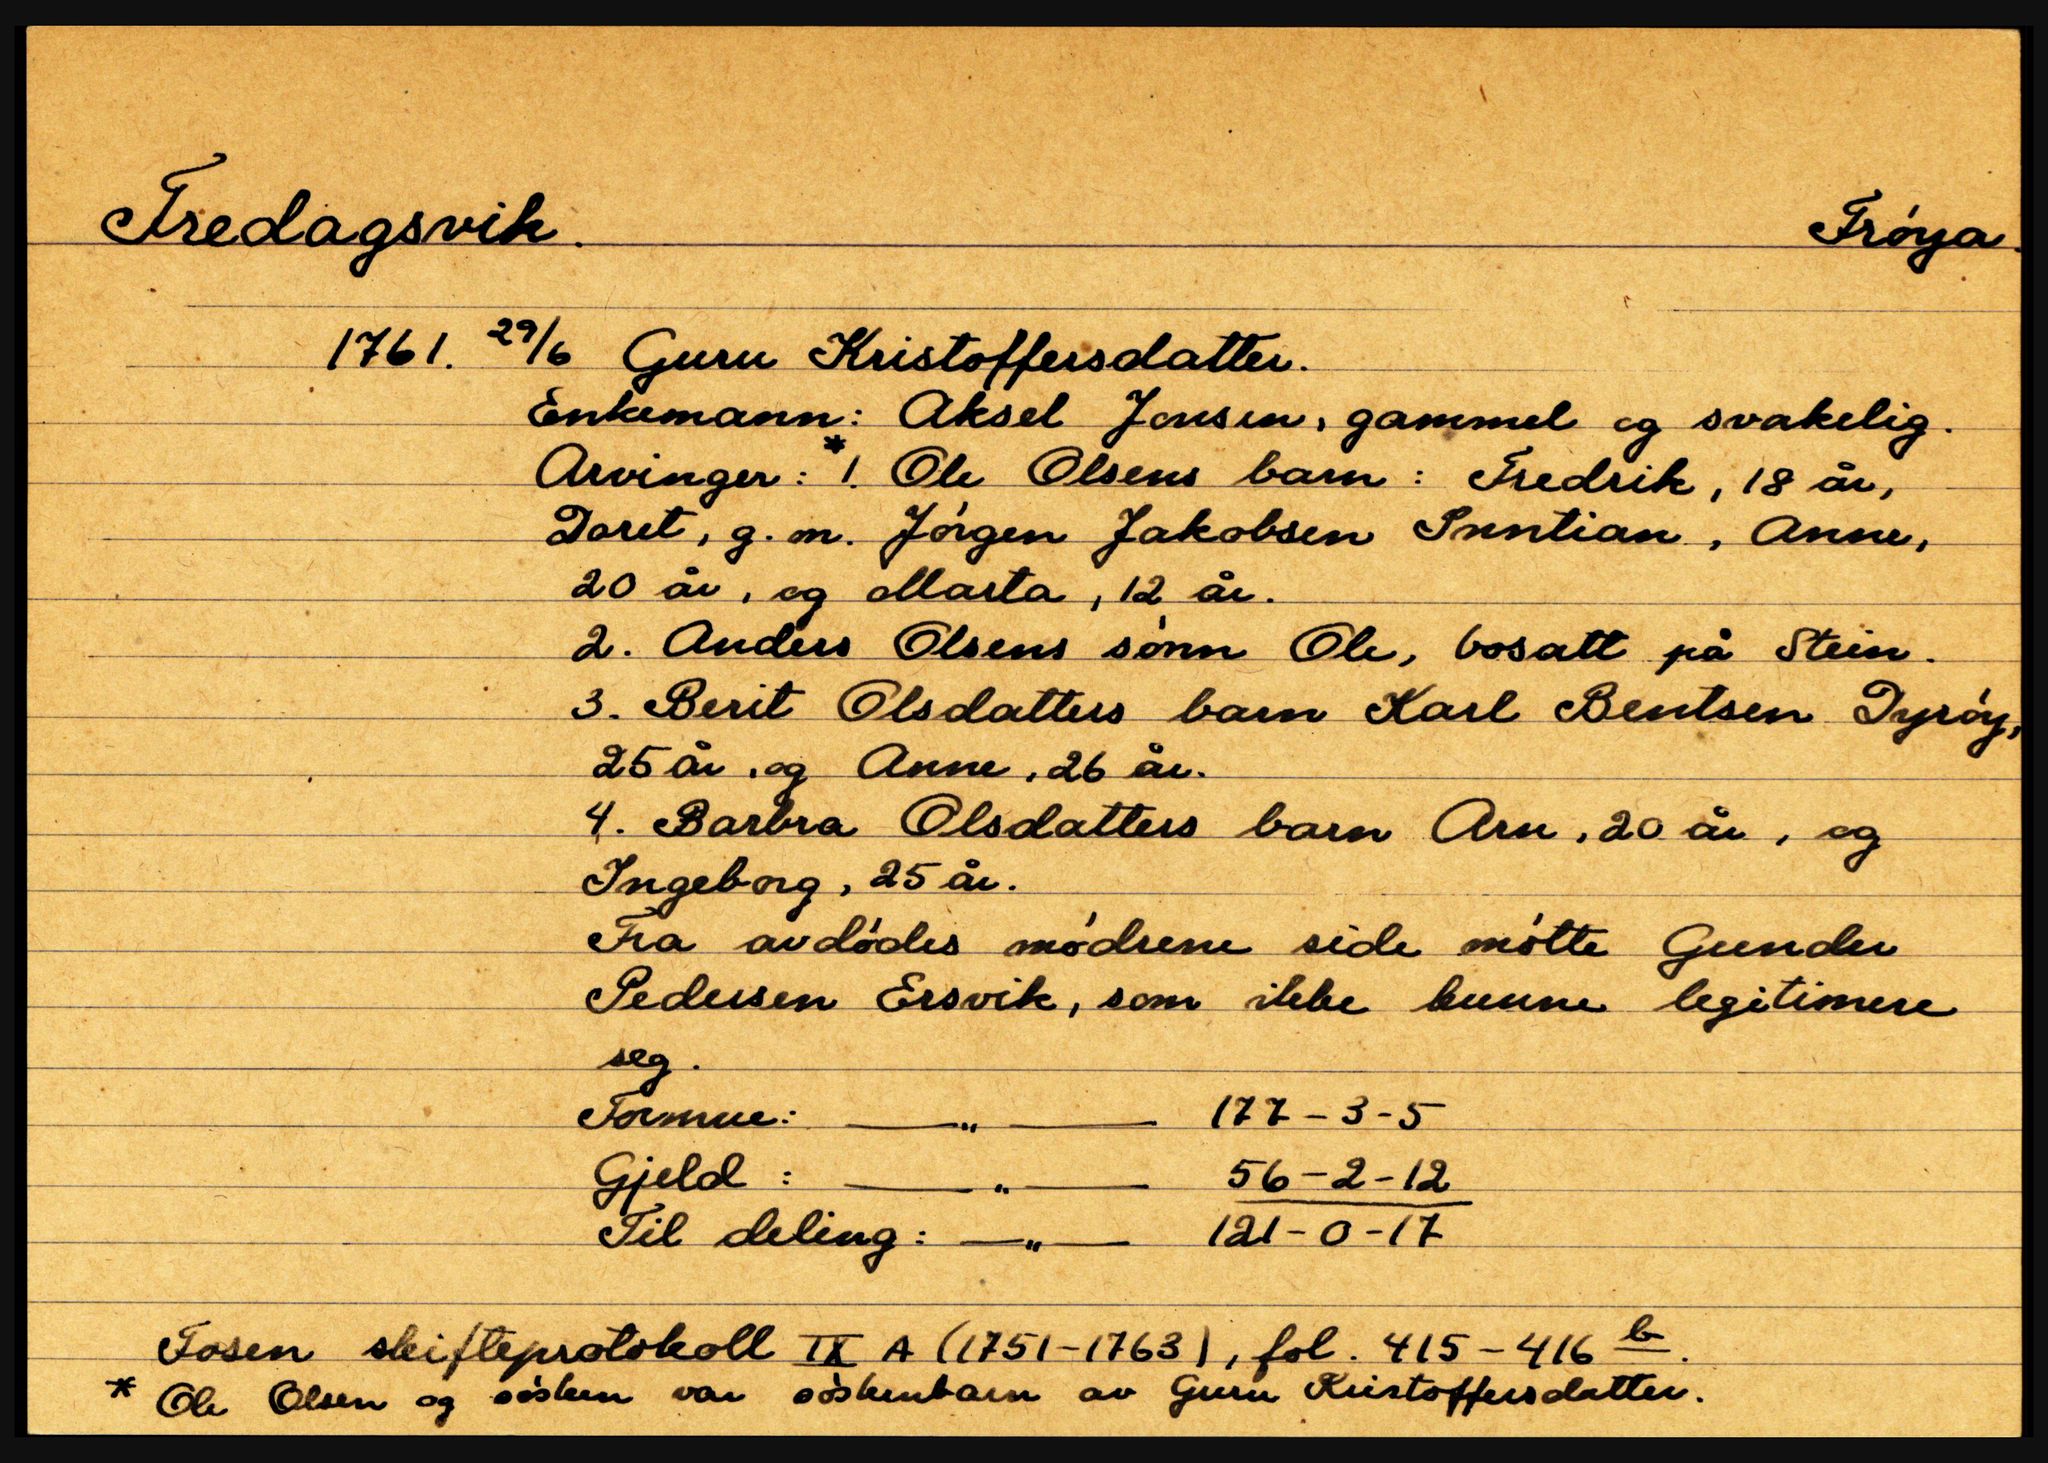 Fredagsvik. Frøya.
1761. 29/6 Guru Kristoffersdatter.
Enkemann: Aksel Jonsen, gammel og svakelig.
Arvinger: * 1. Ole Olsens barn: Fredrik, 18 år,
Doret, g. m. Jørgen Jakobsen Inntian, Anne,
20 år, og Marta, 12 år.
2. Anders Olsens sønn Ole, bosatt på Stein.
3. Berit Olsdatters barn Karl Bentsen Dyrøy,
25 år, og Anne, 26 år.
4. Barbra Olsdatters barn Arn, 20 år, og
Ingeborg, 25 år.
Fra avdødes mødrene side møtte Gunder
Pedersen Ersvik, som ikke kunne legitimere
seg.
Formue: —„— 177-3-5
Gjeld: —„— 56-2-12
Til deling: —„— 121-0-17
Fosen skifteprotokoll IX A (1751-1763), fol. 415-416 b.
* Ole Olsen og søsken var søskenbarn av Guru Kristoffersdatter.